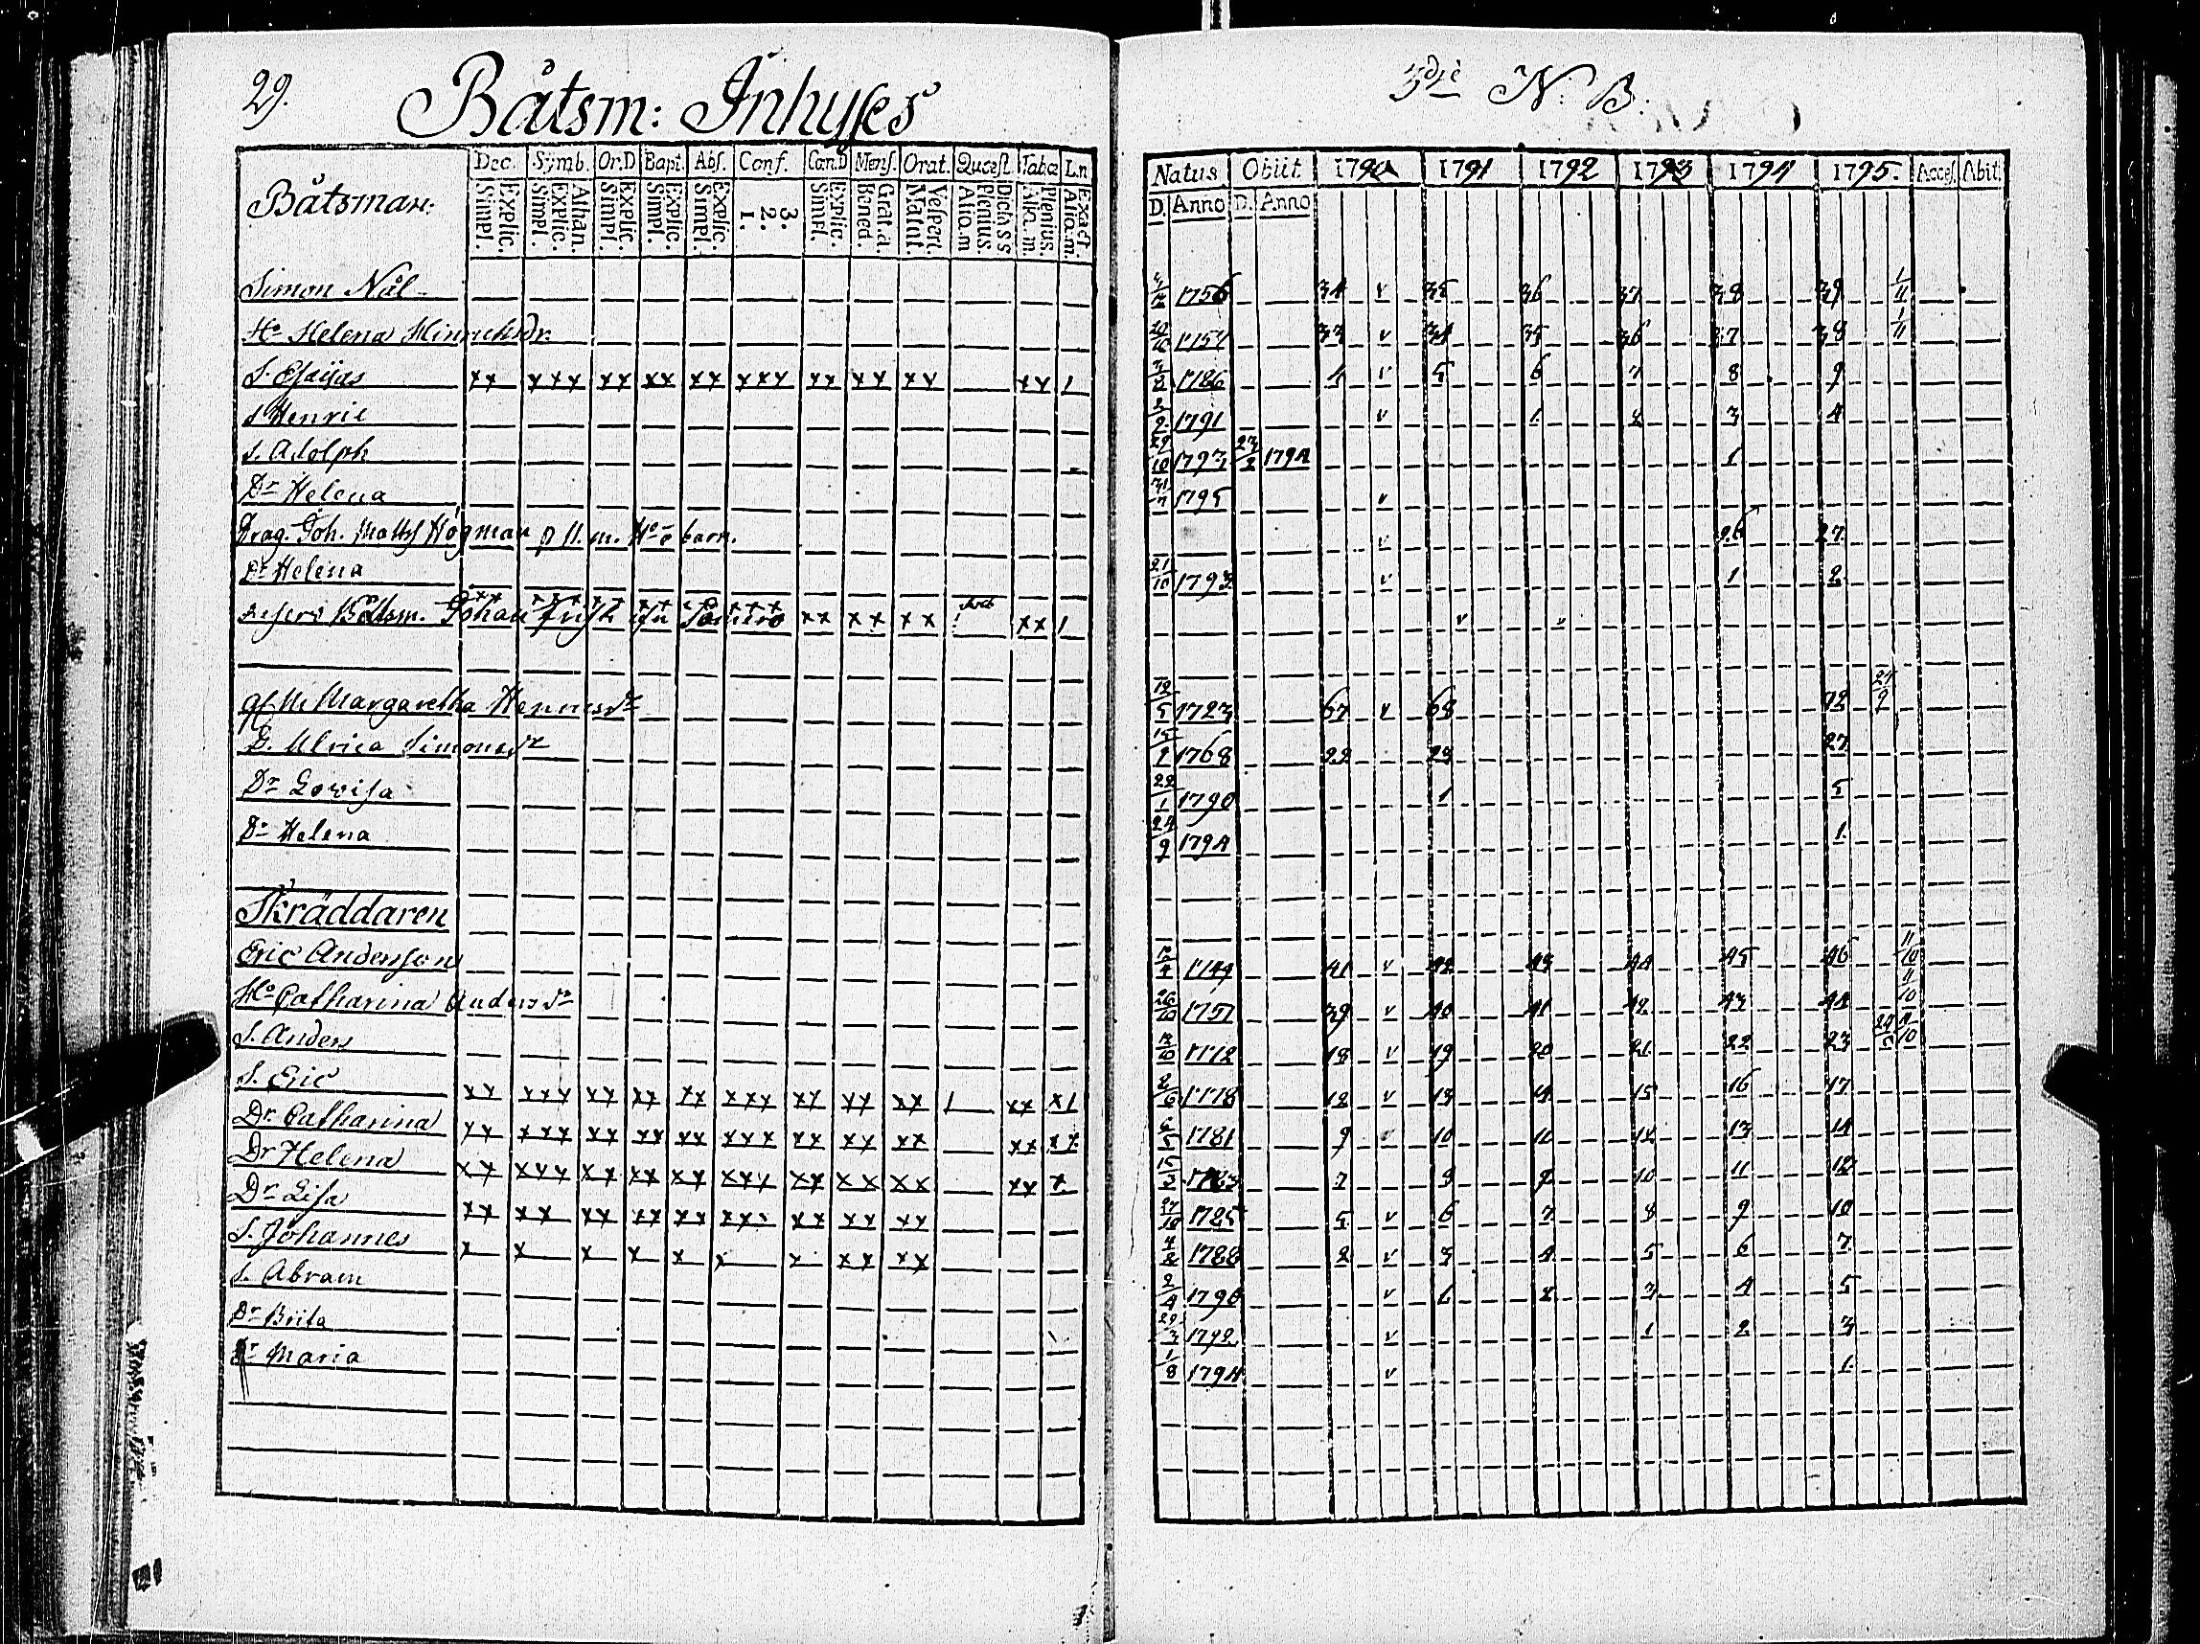 29. Båtsm: Inhyses
Dec. Symb. Or.D Bapt. Abs. Conf. Can.D Mens. Orat. Quæst. Tabæ L.n
Båtsman: Simpl. Explic. Simpl. Explic. Athan. Simpl. Explic. Simpl. Explic. Simpl. Explic. 1. 2. 3. Simpl. Explic. Bened. Grat.a. Matut. Vespert. Aliq.m Plenius. Dicta S S. Aliq.m. Plenius. Aliq.m. Exact.
Simon Nål
Ho Helena Hinrichsdr.
S. Esaijas xx xxx xx xx xx xxx xx xx xx xx 1
S Henric
S. Adolph
Dr Helena
Drag. Joh. Matts Högman
Dr Helena
Båtsm. Johan xx xx xx xx 1
Margaretha Henricsdr
Ulrica Simonsdr
Dr Lovisa
Dr Helena
Skräddaren
Eric Andersson
Ho Catharina Andersdr
S. Anders
S. Eric xx xxx xx xx xx xxx xx xx xx 1 xx x1
Dr Catharina xx xxx xx xx xx xxx xx xx xx xx xx
Dr Helena xx xxx xx xx xx xxx xx xx xx xx x
Dr Lisa xx xx xx xx xx xxx xx xx xx
S. Johannes x x x x x x x xx xx
S. Abram
Dr Brita
Dr Maria
3die N: B:
Natus Obiit 1790 1791 1792 1793 1794 1795. Acces. Abit.
D. Anno D. Anno
1756 34 v 35 36 37 38 39 1/11
1757 33 v 34 35 36 37 38 1/11
1786 4 v 5 6 7 8 9
1791 v 1 2 3 4
29/10 1793 23/2 1794 1
1795 v
v 26 27
21/10 1793 v 1 2
v v
19/5 1723 67 v 68 72 24/9
1768 22 23 27
22/1 1790 1 5
24/9 1794 1.
1749 41 v 42 43 44 45 46 11/10
1751 39 v 40 41 42 43 44 11/10
1772 18 v 19 20 21 22 23
1778 12 v 13 14 15 16 17
1781 9 10 11 12 13 14
7 8 9 10 11 12
27/10 1785 5 v 6 7 8 9 10
1788 2 v 3 4 5 6 7
2/4 1790 v 1 2 3 4 5
29/3 1792. v 1 2 3
1/8 1794 v 1.